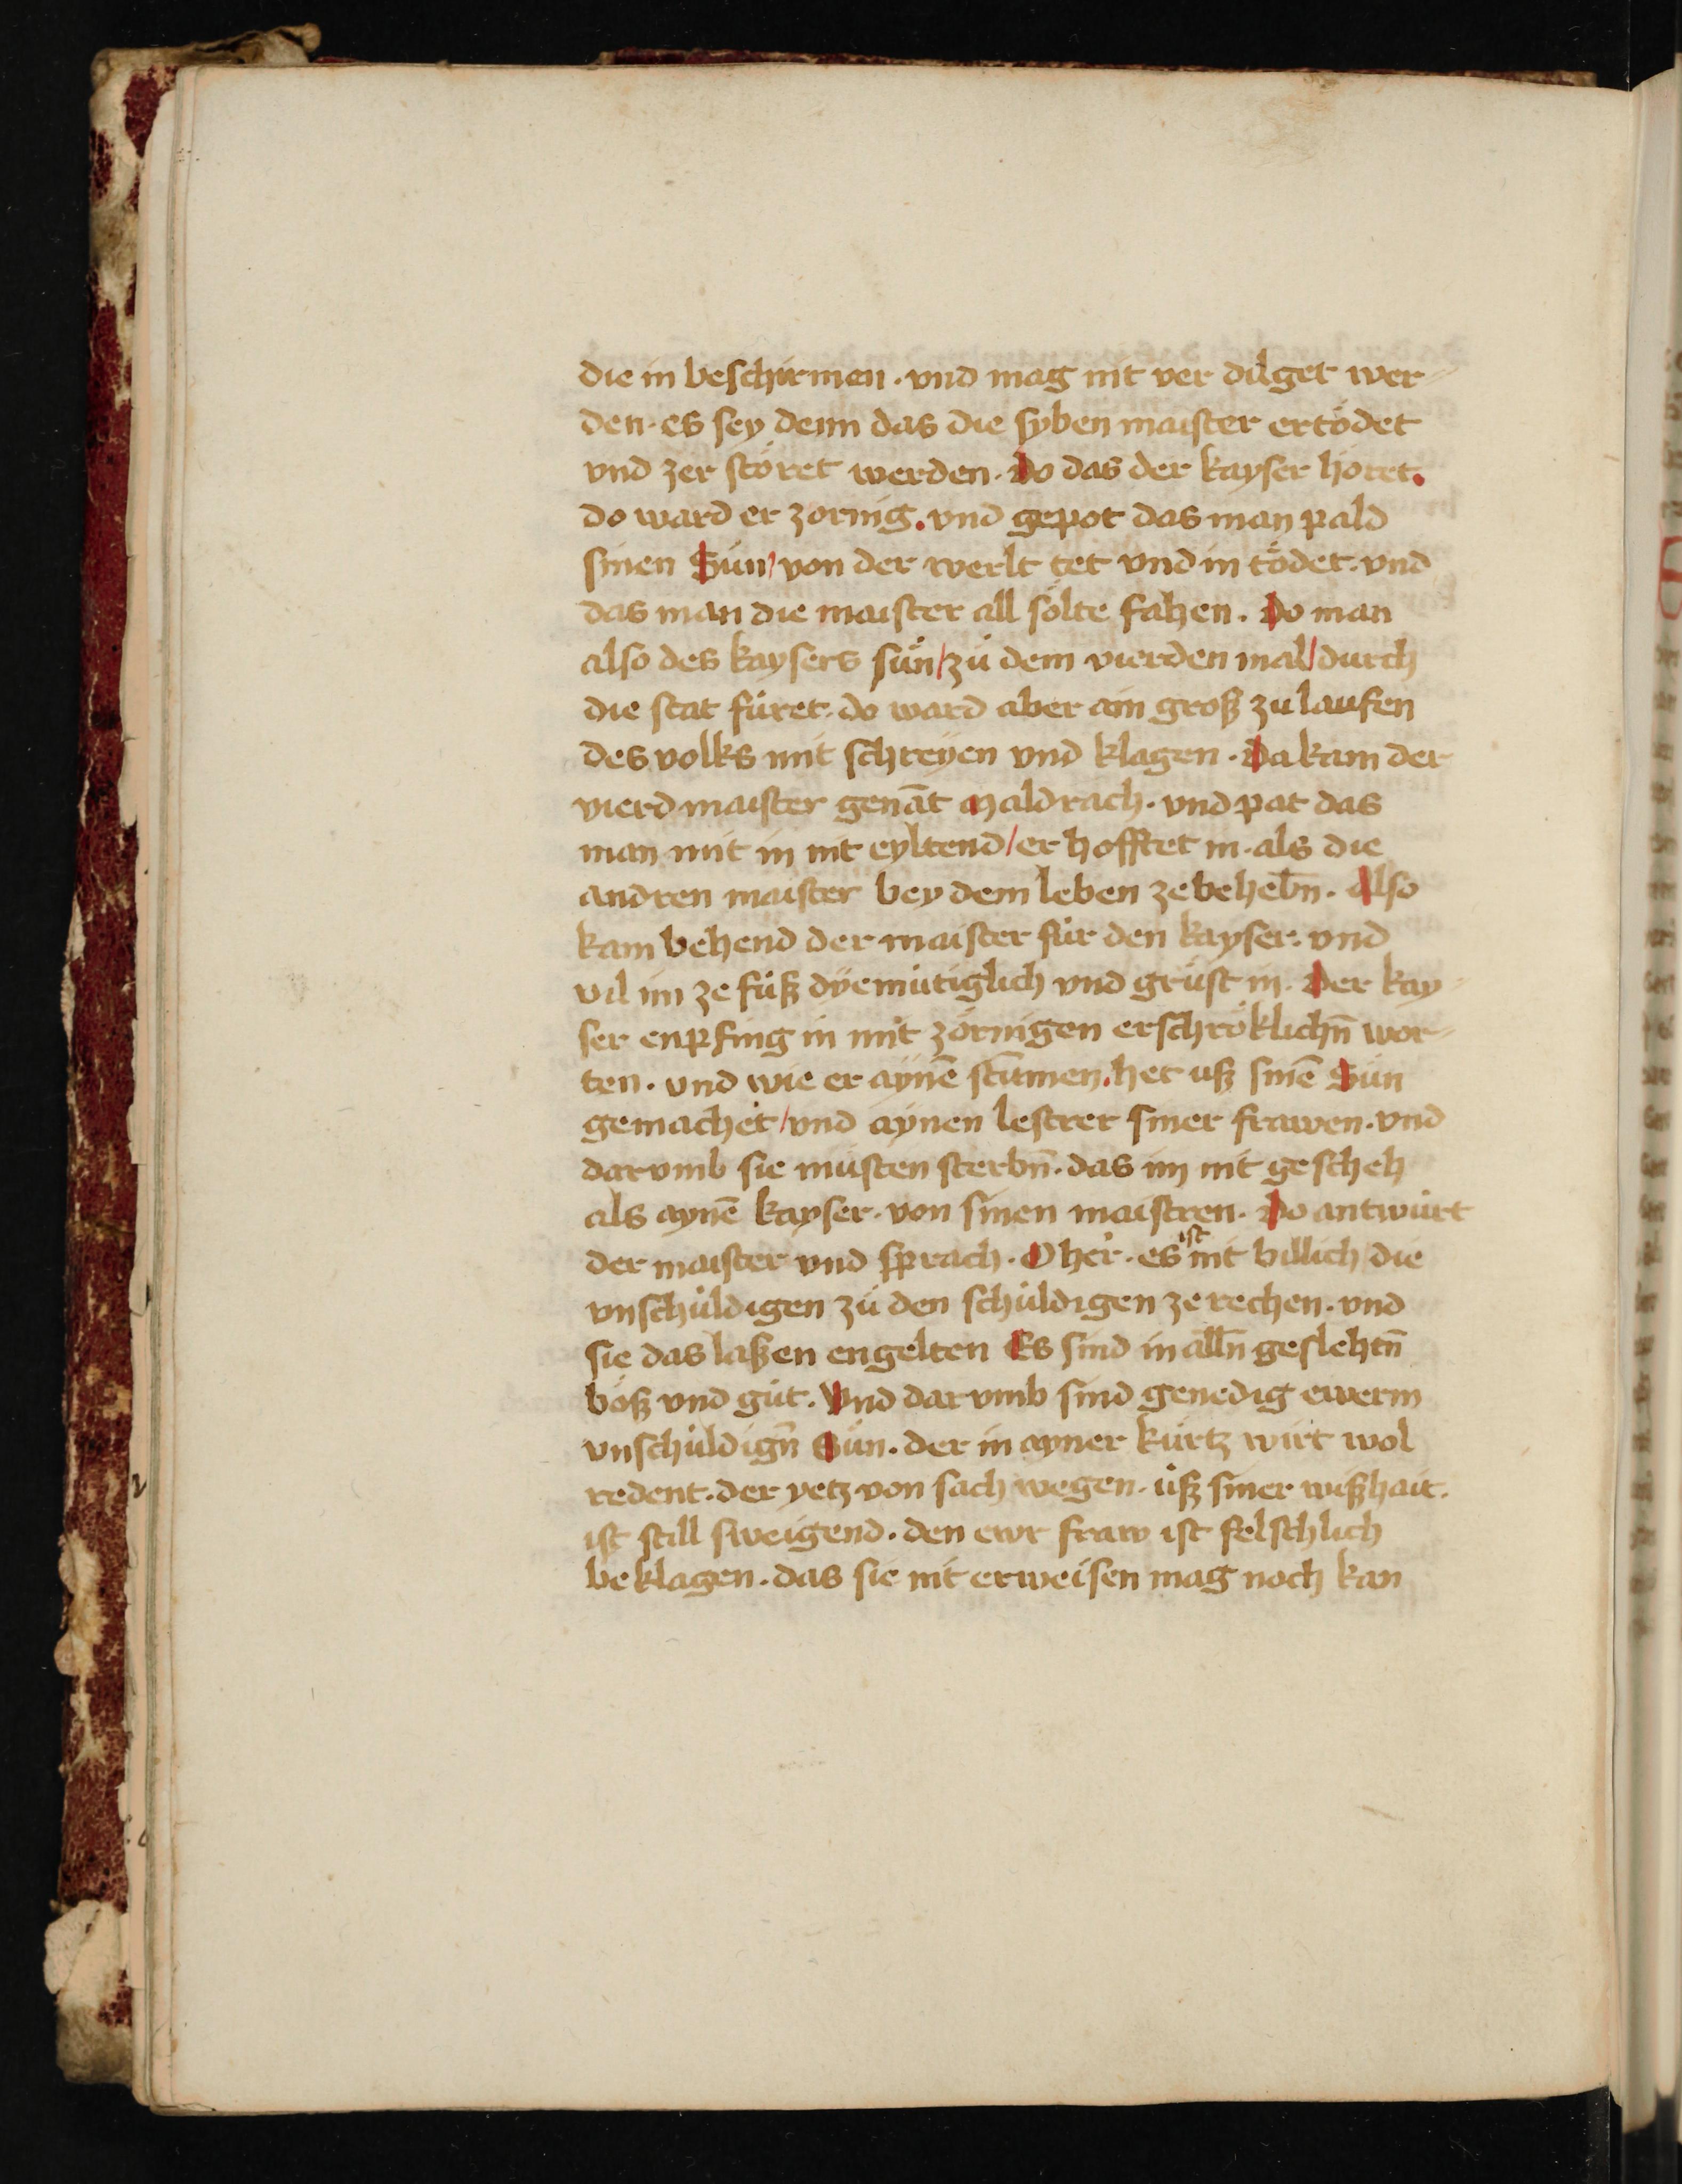 die in beschirmen · vnd mag nit ver dilget wer⸗
den · es sey denn das die syben maister ertödet
vnd zer störet werden · Do das der kayser hőret .
do ward er zornig . vnd gepot das man pald
sinen Sun / von der werlt tet vnd in tödet · vnd
das man die maister all sölte fahen · Do man
also des kaysers sün / zů dem vierden mal / durch
die stat füret · do ward aber ain groß zu laufen
des volks mit schreyen vnd klagen · Da kam der
vierd maister genāt Maldrach · vnd pat das
man mit in nit eyltend / er hofftet in · als die
andren maister bey dem leben ze behebn̄ · Also
kam behend der maister für den kayser · vnd
vil im ze fůß dÿemütiglich vnd grüst in · Der kay⸗
ser enpfing in mit zörnigen erschröklichn̄ wor⸗
ten · vnd wie er aynē stūmen . het uß sinē Sun
gemachet / vnd aynen lestrer siner frawen · vnd
darvmb sie müsten sterbn̄ · das im nit gescheh
als aynē kayser · von sinen maistren · Do antwürt
der maister vnd sprach · O her · es ist nit billich die
vnschuldigen zů den schuldigen ze rechen · vnd
sie das laßen engelten Es sind in alln̄ geslehtn̄
böß vnd gůt · Vnd darvmb sind genedig ewerm
vnschuldign̄ Sun · der in ayner kürtz wirt wol
redent · der yetz von sach wegen · uß siner wißhait ·
ist still sweigend · den ewr fraw ist felschlich
beklagen · das sie nit erweisen mag noch kan